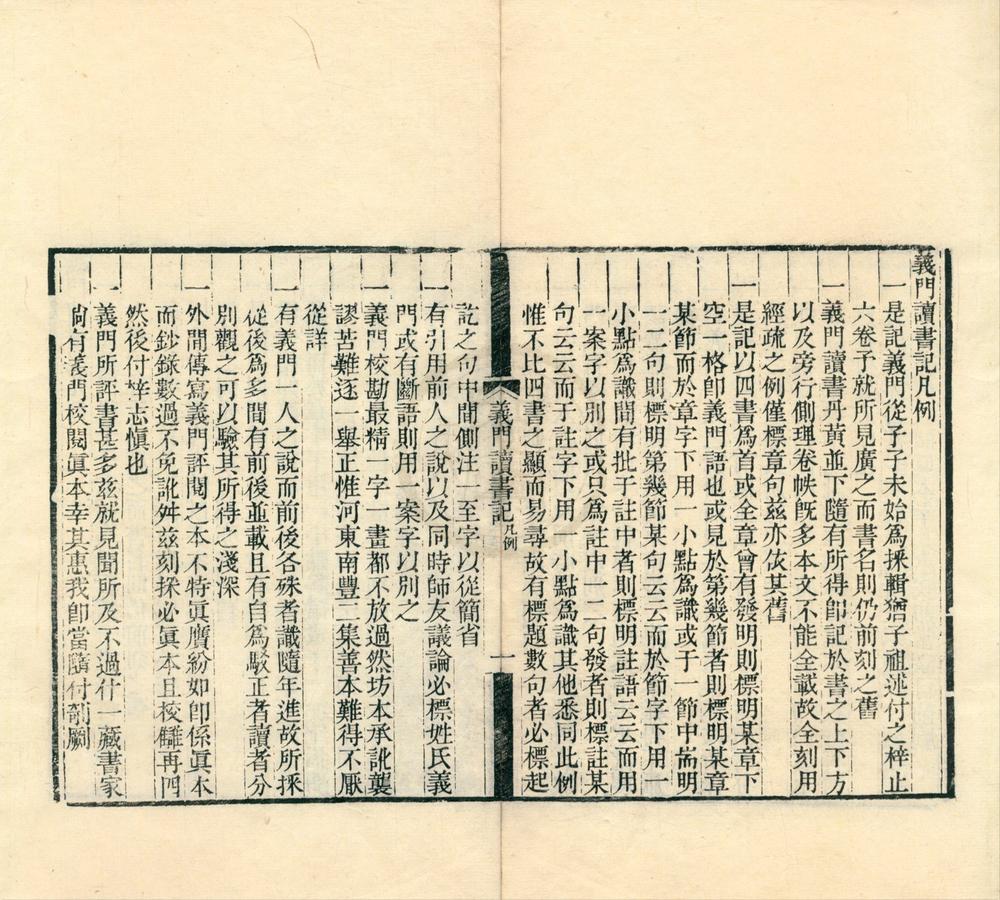 義門讀書記凡例
一是記義門從子子未始爲採輯猶子祖述付之梓止
六卷予就所見廣之而書名則仍前刻之舊
一義門讀書丹黃並下隨有所得卽記於書之上下方
以及旁行側理卷帙旣多本文不能全載故全刻用
經疏之例僅標章句茲亦依其舊
一是記以四書爲首或全章曾有發明則標明某章下
空一格卽義門語也或見於第幾節者則標明某章
某節而於章字下用一小點爲識或于一節中耑明
一二句則標明第幾節某句云云而於節字下用一
小點爲識間有批于註中者則標明註語云云而用
一案字以別之或只爲註中一二句發者則標註某
句云云而于註字下用一小點爲識其他悉同此例
惟不比四書之顯而易尋故有標題數句者必標起
義門讀書記 凡例 一
訖之句中間側注一至字以從簡省
一有引用前人之說以及同時師友議論必標姓氏義
門或有斷語則用一案字以別之
一義門校勘最精一字一畫都不放過然坊本承訛襲
謬苦難逐一舉正惟河東南豐二集善本難得不厭
從詳
一有義門一人之說而前後各殊者識隨年進故所採
從後爲多間有前後並載且有自爲駁正者讀者分
別觀之可以驗其所得之淺深
一外間傳寫義門評閱之本不特眞贋紛如卽係眞本
而鈔錄數過不免訛舛茲刻採必眞本且校讎再四
然後付梓志愼也
一義門所評書甚多茲就見聞所及不過什一藏書家
尙有義門校閱眞本幸其惠我卽當隨付剞劂